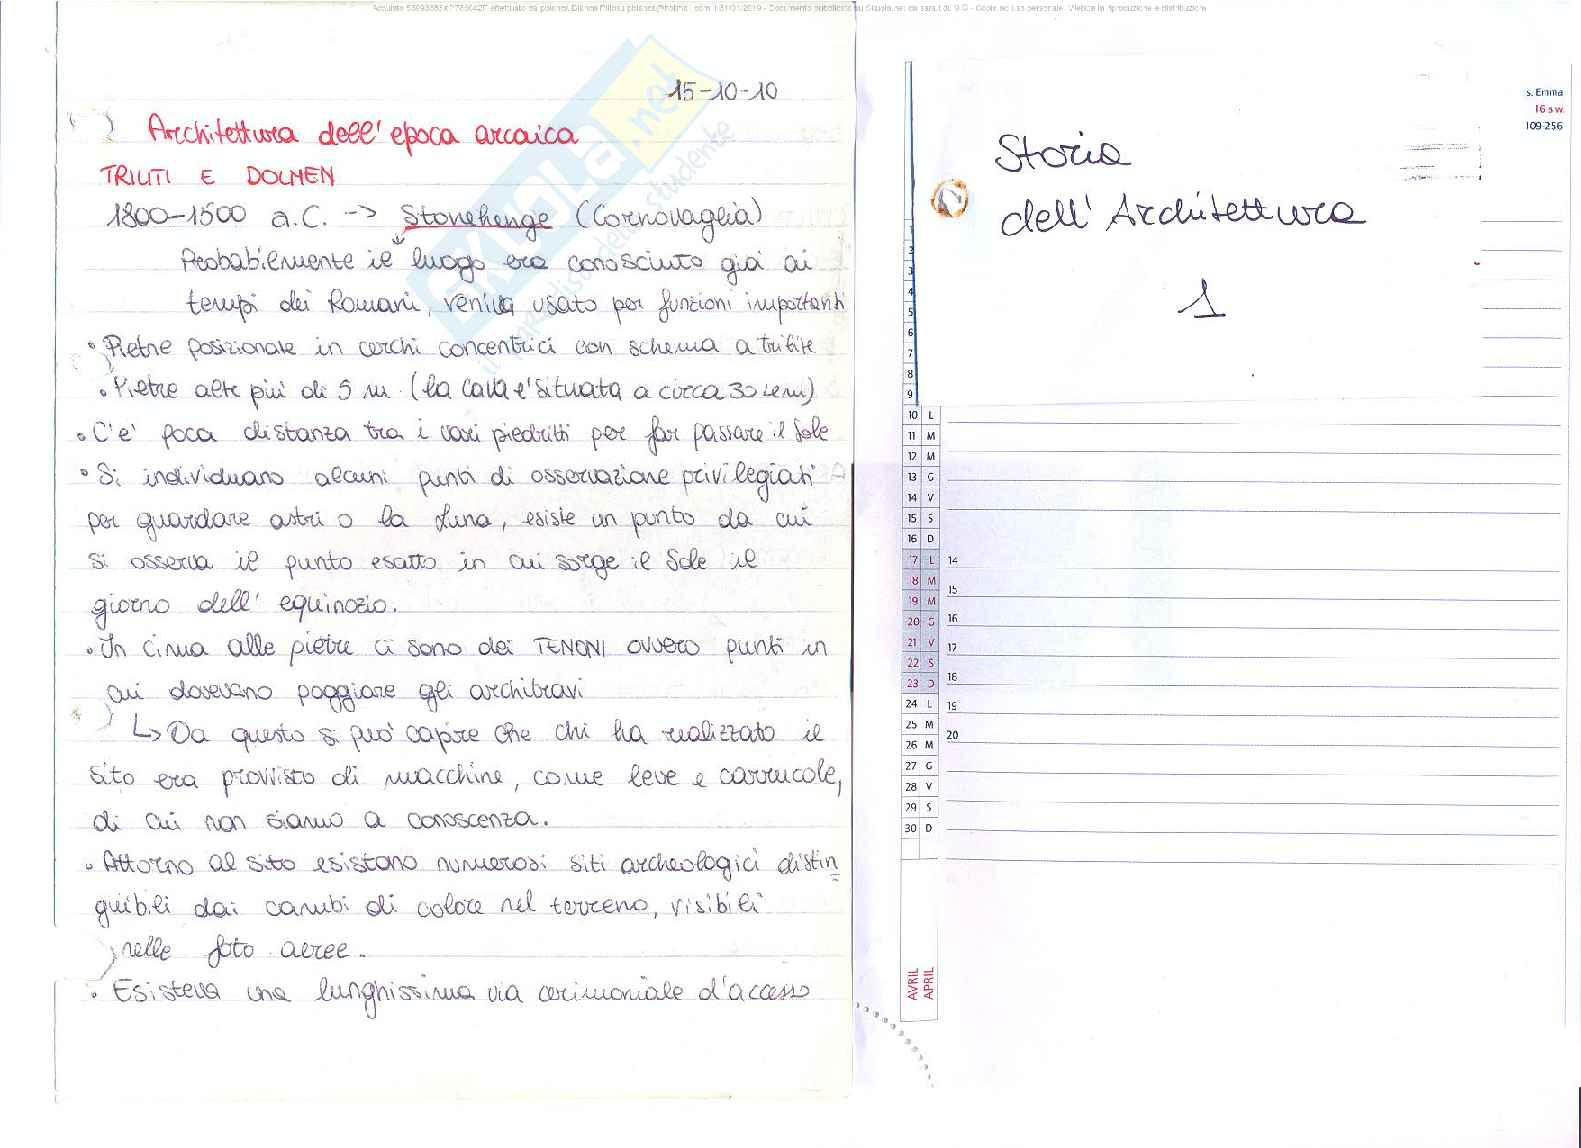 15-10-10
Architettura dell'epoca arcaica
TRILITI E DOLMEN
1800-1500 a.C. -> Stonehenge (Cornovaglia)
Probabilmente il luogo era conosciuto già ai
tempi dei Romani, veniva usato per funzioni importanti
• Pietre posizionate in cerchi concentrici con schema a trilite
• Pietre alte più di 5 m (la cava è situata a circa 30 km)
• C'è poca distanza tra i vari piedritti per far passare il Sole
• Si individuano alcuni punti di osservazione privilegiati
per guardare astri o la Luna, esiste un punto da cui
si osserva il punto esatto in cui sorge il Sole il
giorno dell'equinozio.
• In cima alle pietre ci sono dei TENONI ovvero punti in
cui dovevano poggiare gli architravi
↳ Da questo si può capire che chi ha realizzato il
sito era provvisto di macchine, come leve e carrucole,
di cui non siamo a conoscenza.
• Attorno al sito esistono numerosi siti archeologici distin
guibili dai cambi di colore nel terreno, visibili
nelle foto aeree.
• Esisteva una lunghissima via cerimoniale d'accesso
skuola.net
il paradiso dello studente
s. Emma
16 s w.
109-256
Storia
dell'Architettura
1
1
2
3
4
5
6
7
8
9
10 L
11 M
12 M
13 G
14 V
15 S
16 D
7 L 14
8 M
9 M 15
20 G 16
21 V 17
22 S
23 D 18
24 L 19
25 M
26 M 20
27 G
28 V
29 S
30 D
AVRIL
APRIL